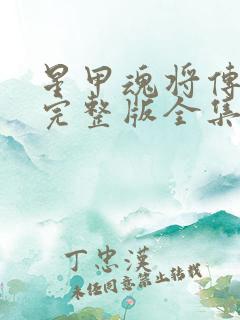 星甲魂将传
完整版全集
丁忠漢
未经同意禁止转载